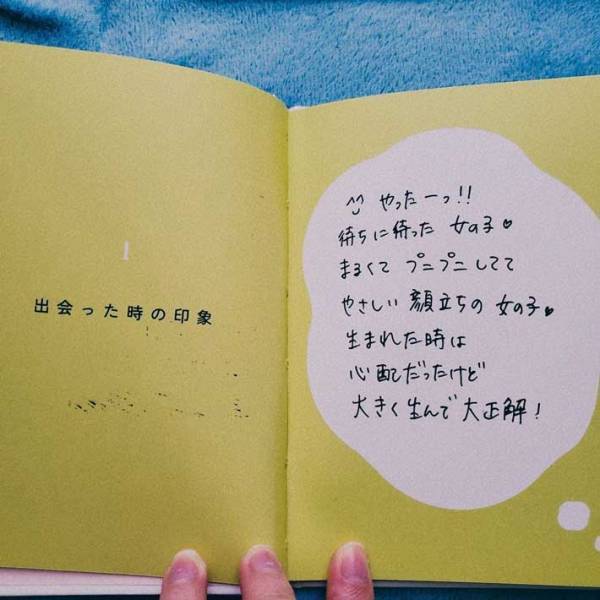 1
出会った時の印象
やったーっ!!
待ちに待った 女の子♥
まるくて プニプニしてて
やさしい 顔立ちの 女の子♥
生まれた時は
心配だったけど
大きく生んで 大正解!